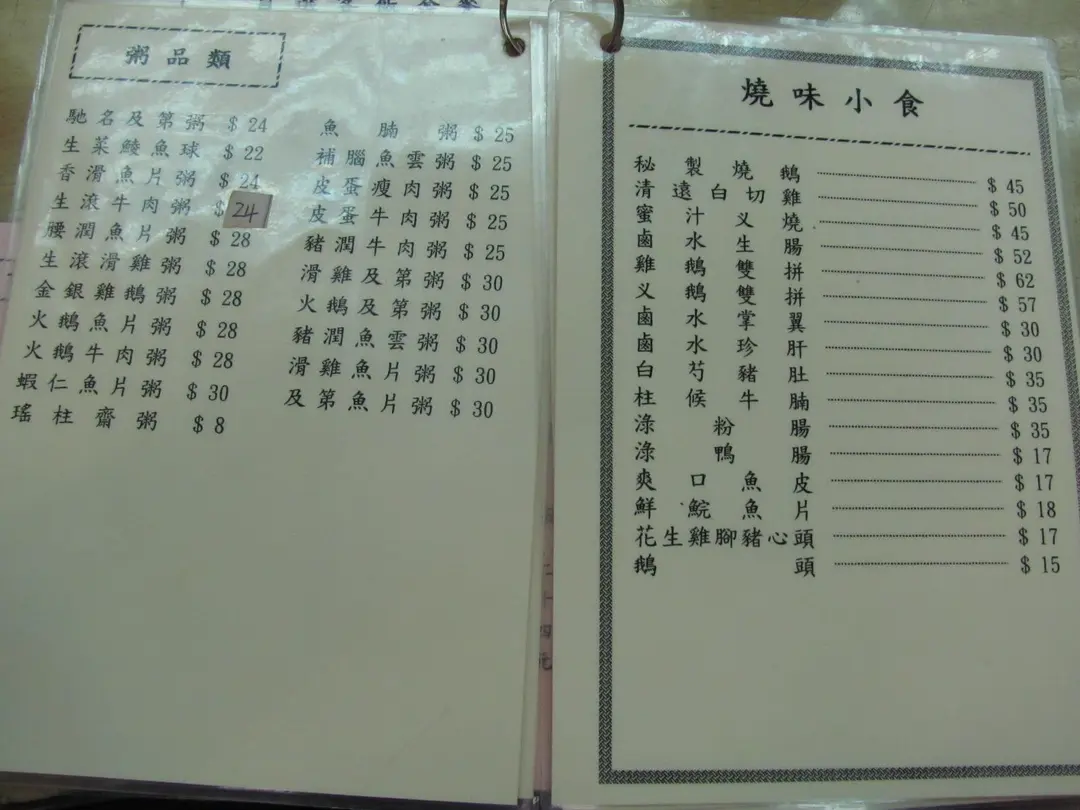 粥品類
馳名及第粥 $24
生菜鯪魚球 $22
香滑魚片粥 $24
生滾牛肉粥 $24
腰潤魚片粥 $28
生滾滑雞粥 $28
金銀雞鵝粥 $28
火鵝魚片粥 $28
火鵝牛肉粥 $28
蝦仁魚片粥 $30
瑤柱齋粥 $8
魚腩粥 $25
補腦魚雲粥 $25
皮蛋瘦肉粥 $25
皮蛋牛肉粥 $25
豬潤牛肉粥 $25
滑雞及第粥 $30
火鵝及第粥 $30
豬潤魚雲粥 $30
滑雞魚片粥 $30
及第魚片粥 $30
燒味小食
秘製燒鵝 $45
清遠白切雞 $50
蜜汁义燒 $45
鹵水生腸 $52
雞鵝雙拼 $62
义鵝雙拼 $57
鹵水掌翼 $30
鹵水珍肝 $30
白芍豬肚 $35
柱候牛腩 $35
淥粉腸 $35
淥鴨腸 $17
爽口魚皮 $17
鮮鯇魚片 $18
花生雞腳豬心頭 $17
鵝頭 $15